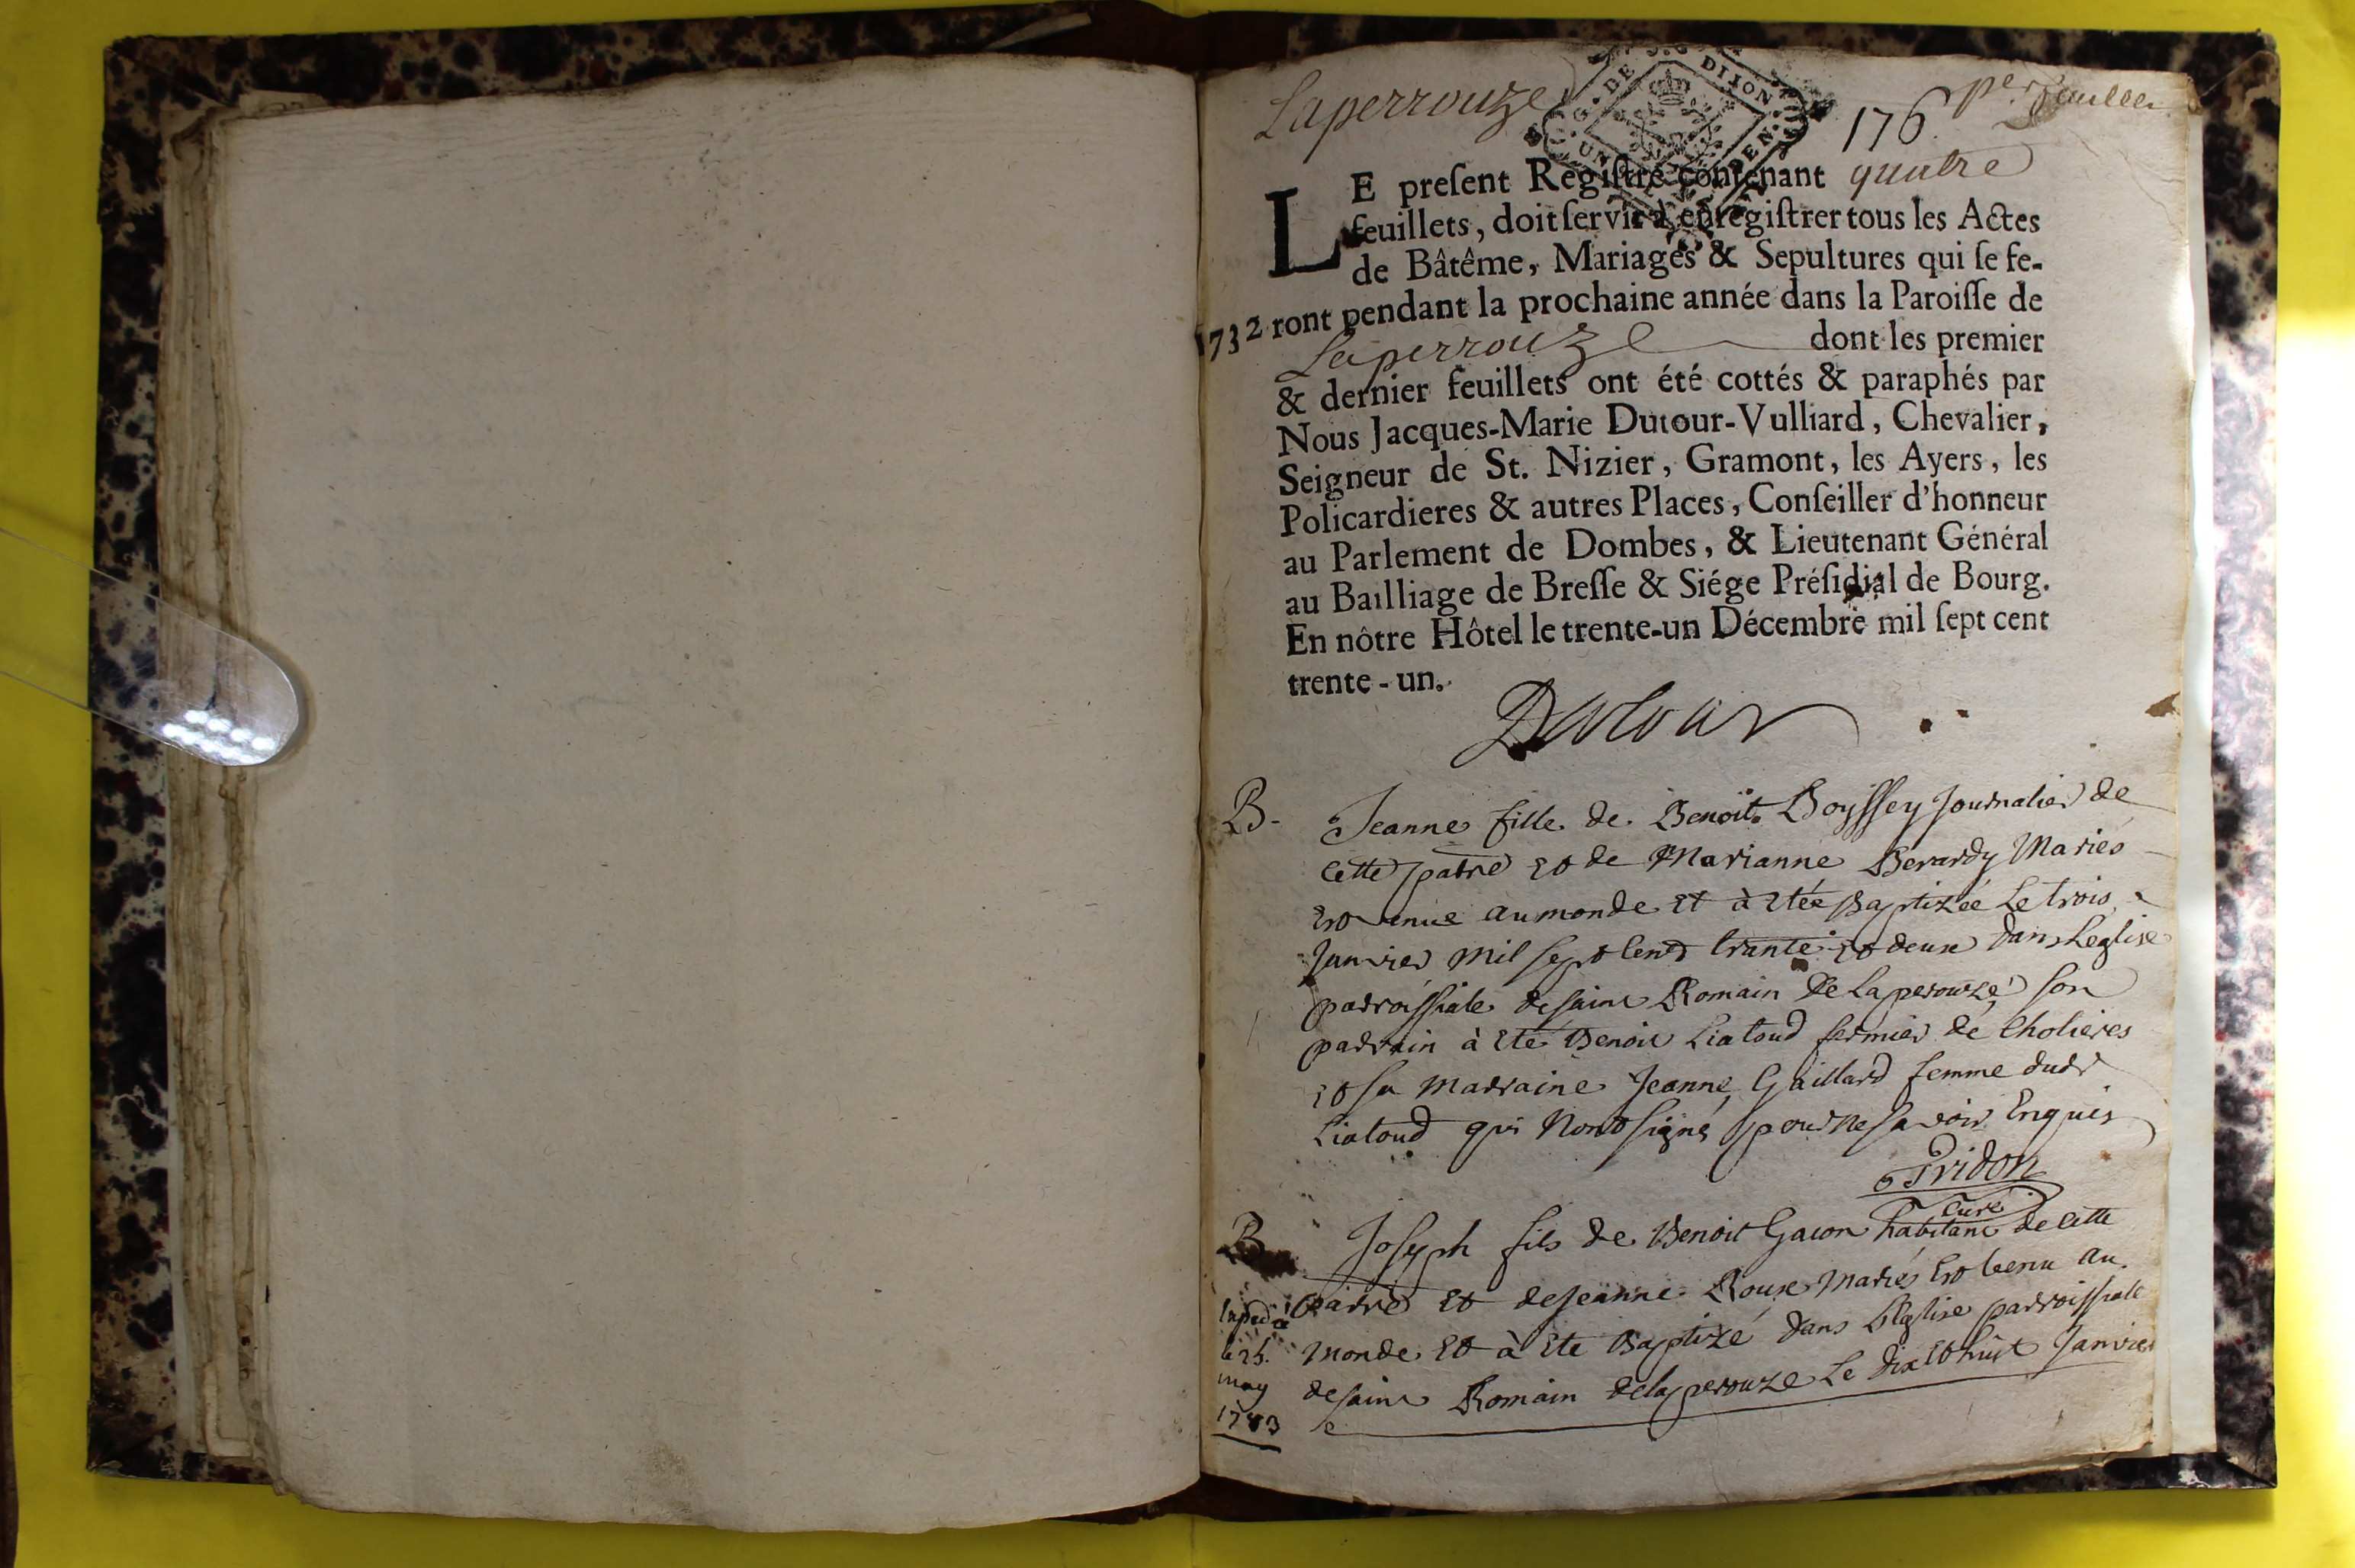 Laperrouze
G. DE DIJON
UN
DEN.
176. pr. feuillet
LE preſent Regiſtre contenant quatre
feuillets, doit ſervir à enregiſtrer tous les Actes
de Bâtême, Mariages & Sepultures qui ſe fe-
ront pendant la prochaine année dans la Paroiſſe de
1732
Laperrouze dont les premier
& dernier feuillets ont été cottés & paraphés par
Nous Jacques-Marie Dutour-Vulliard, Chevalier,
Seigneur de St. Nizier, Gramont, les Ayers, les
Policardieres & autres Places, Conſeiller d'honneur
au Parlement de Dombes, & Lieutenant Général
au Bailliage de Breſſe & Siége Préſidial de Bourg.
En nôtre Hôtel le trente-un Décembre mil ſept cent
trente-un.
Dutour
B. Jeanne fille de Benoit Boyssey Journalier de
cette parre et de Marianne Berardy Mariés
est venue au monde et à étée Baptizée Le trois
Janvier mil sept cent trante et deux dans Leglise
parroissiale de saint Romain de Laperouze son
parrain à été Benoit Liatoud fermier de Cholieres
et sa marraine Jeanne Gaillard femme dudt
Liatoud qui n'ont signé pour ne savoir Enquis
Pridon
Curé
B. Joseph fils de Benoit Gacon habitant de cette
parre et de Jeanne Roux Mariés est venu au
monde et à été Baptizé dans L'Eglise parroissiale
de saint Romain de Laperouze Le dix et huit Janvier
le 25.
may
1783